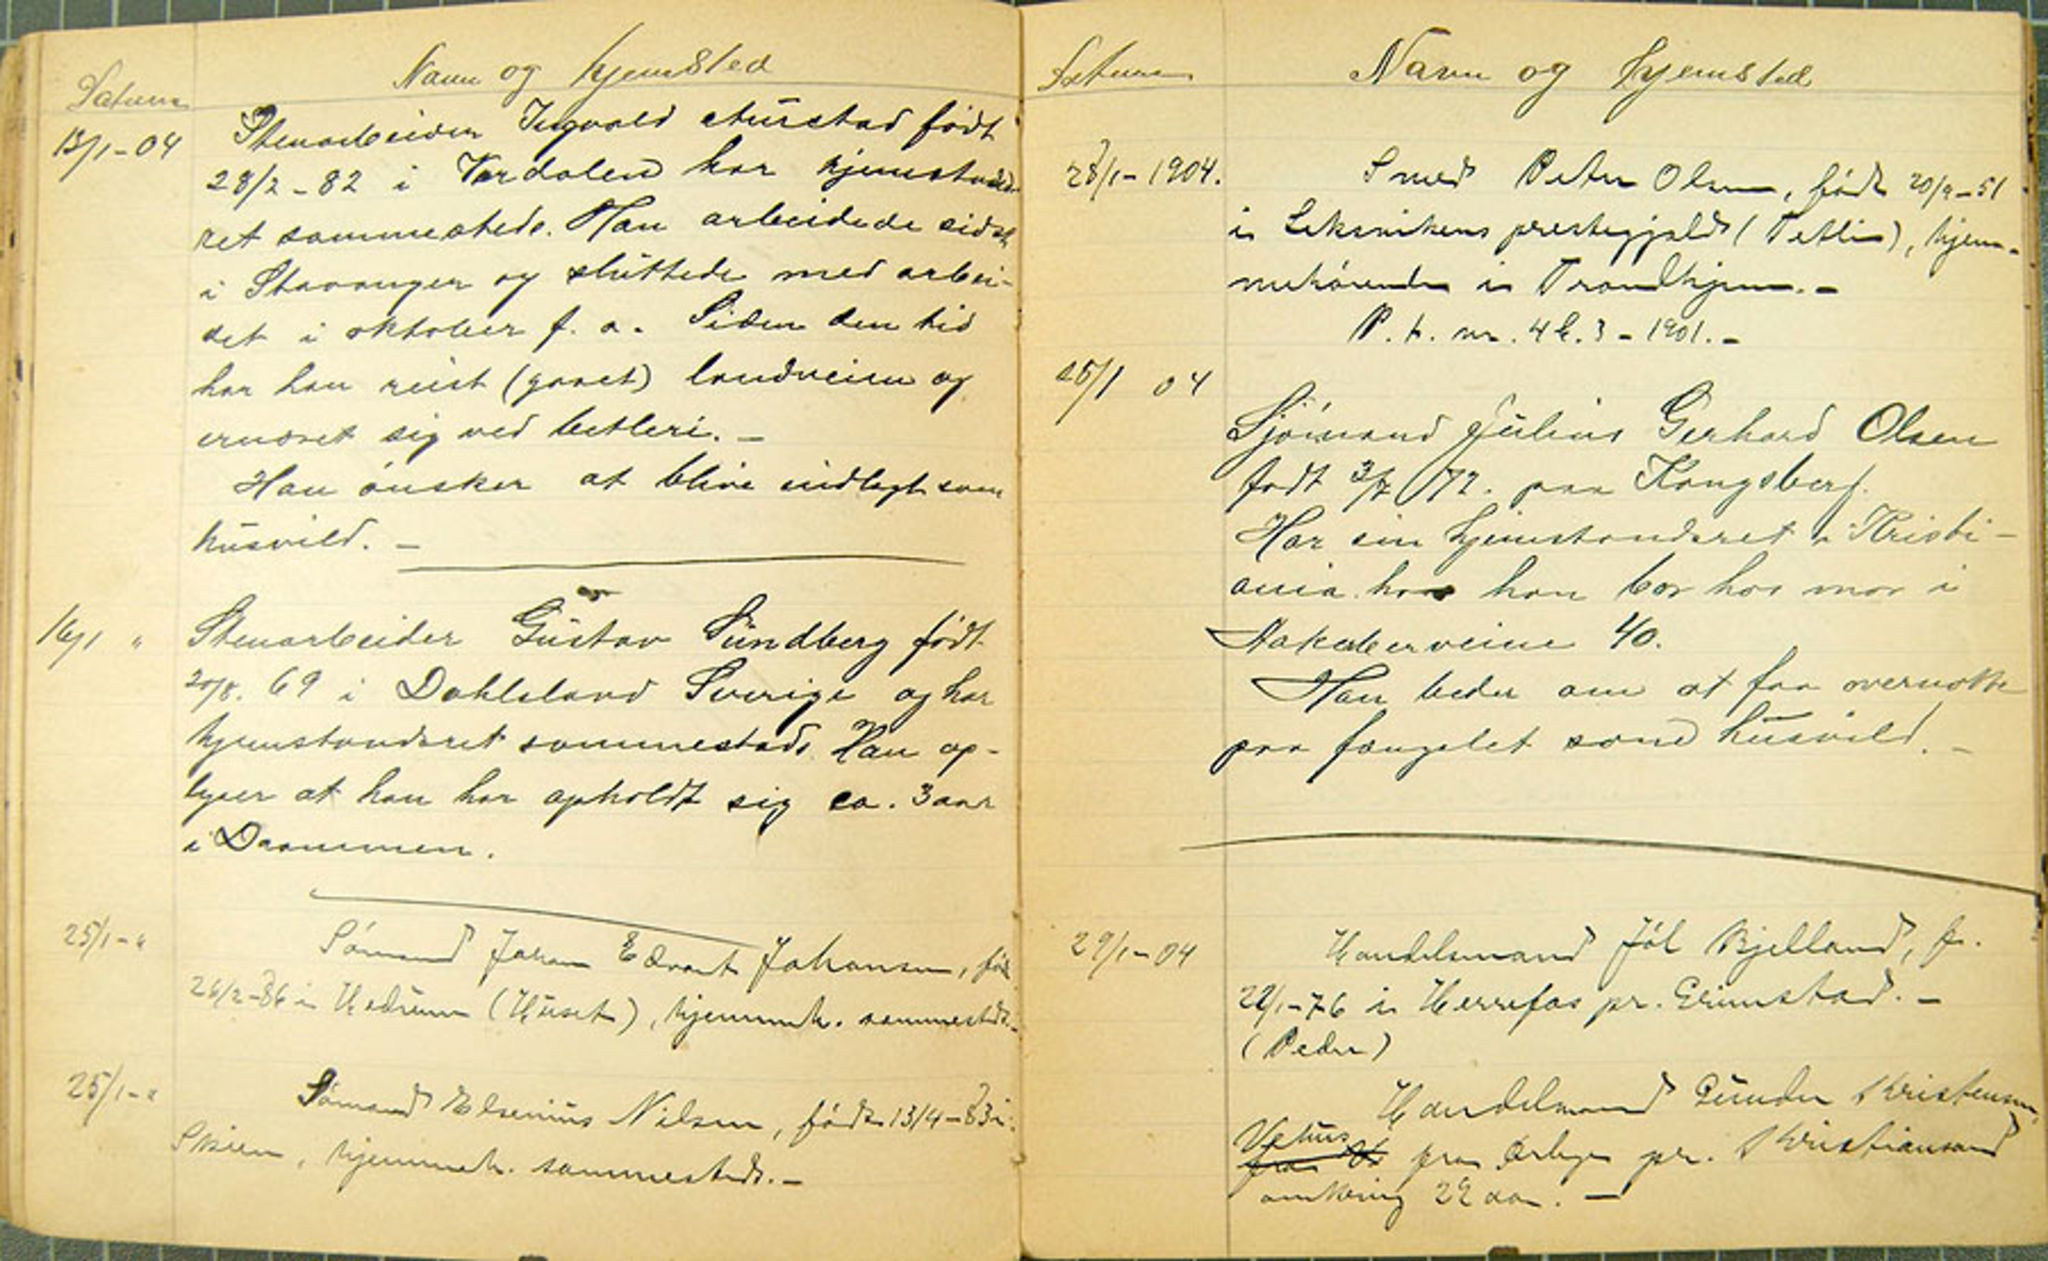 Datum
Navn og hjemsted
13/1-04
Stenarbeider Ingvald født
28/2-82 i Værdalen har hjemstavns
ret sammesteds. Han arbeidede sidst
i Stavanger og sluttede med arbei-
det i oktober f. a. Siden den tid
har han reist (gaaet) landveien og
ernæret sig ved betleri. -
Han ønsker at blive indlagt som
husvild. -
16/1 "
Stenarbeider Gustav Sundberg født
20/8. 69 i Dahlsland Sverige og har
hjemstavnsret sammesteds. Han op-
lyser at han har opholdt sig ca. 3 aar
i Drammen.
25/1-"
Sømand Edvart Johansen, født
26/2-86 i Hedrum (Huset), hjemmeh. sammesteds.-
25/1-"
Sømand Elsenius Nilsen, født 13/4-83 i
Skien, hjemmeh. sammesteds.-
Datum
Navn og hjemsted
28/1-1904.
Smed Peter Olsen, født 20/9-51
i Leksvikens prestegjeld (Tetlie), hjem-
mehørende i Trondhjem.-
P. t. nr. 4 3-1901.-
25/1 04
Sjømand Julius Gerhard Olsen
født 3/7 72. paa Kongsberg.
Har sin hjemstavnsret i Kristi-
ania. han bor hos mor i
Aakebergveien 40.
Han beder om at faa overnatte
paa fængslet som husvild. -
29/1-04
Handelsmand Jøl Kjelland, f.
22/1-76 i Herrefos pr. Grimstad. -
(Peder)
Handelsmand Gunder Kristensen
Vehus
fra pr. Kristiansand
omkring 22 aar. -